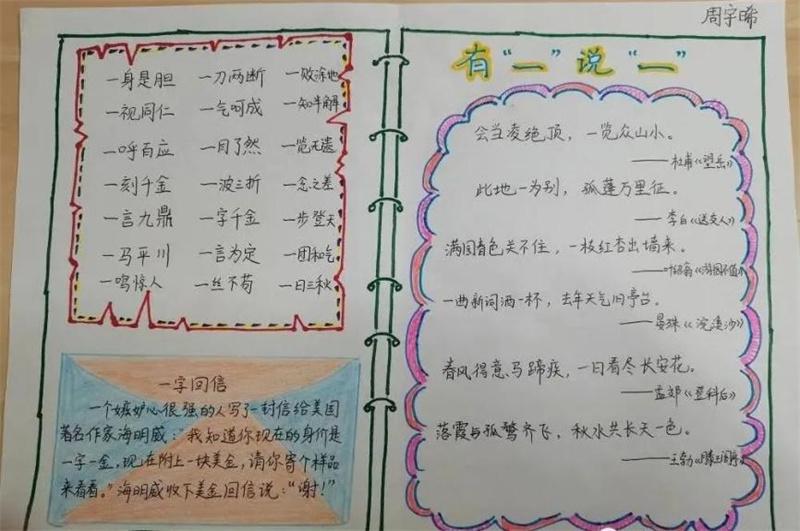 周宇晞
一身是胆 一刀两断 一败涂地
一视同仁 一气呵成 一知半解
一呼百应 一目了然 一览无遗
一刻千金 一波三折 一念之差
一言九鼎 一字千金 一步登天
一马平川 一言为定 一团和气
一鸣惊人 一丝不苟 一日三秋
一字回信
一个嫉妒心很强的人写了一封信给美国
著名作家海明威:"我知道你现在的身价是
一字一金,现在附上一块美金,请你寄个样品
来看看。"海明威收下美金回信说:"谢!"
有“一”说“一”
会当凌绝顶,一览众山小。
——杜甫《望岳》
此地一为别,孤蓬万里征。
——李白《送友人》
满园春色关不住,一枝红杏出墙来。
——叶绍翁《游园不值》
一曲新词酒一杯,去年天气旧亭台。
——晏殊《浣溪沙》
春风得意马蹄疾,一日看尽长安花。
——孟郊《登科后》
落霞与孤鹜齐飞,秋水共长天一色。
——王勃《滕王阁序》